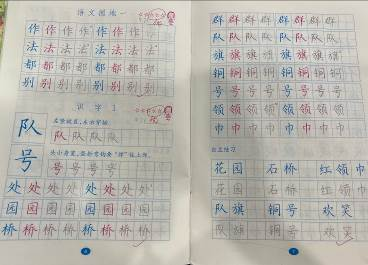 语文园地一
作作作作作作作
法法法法法法法
都都都都都都都
别别别别别别别
识字 1
队
队队队队
号
号号号号
处处处处处处处
园园园园园园园
桥桥桥桥桥桥桥
群群群群群群群
队队队队队队队
旗旗旗旗旗旗旗
铜铜铜铜铜铜铜
号号号号号号号
领领领领领领领
巾巾巾巾巾巾巾
自主练习
花园 石桥 红领巾
花园 石桥 红领巾
队旗 铜号 欢笑
队旗 铜号 欢笑